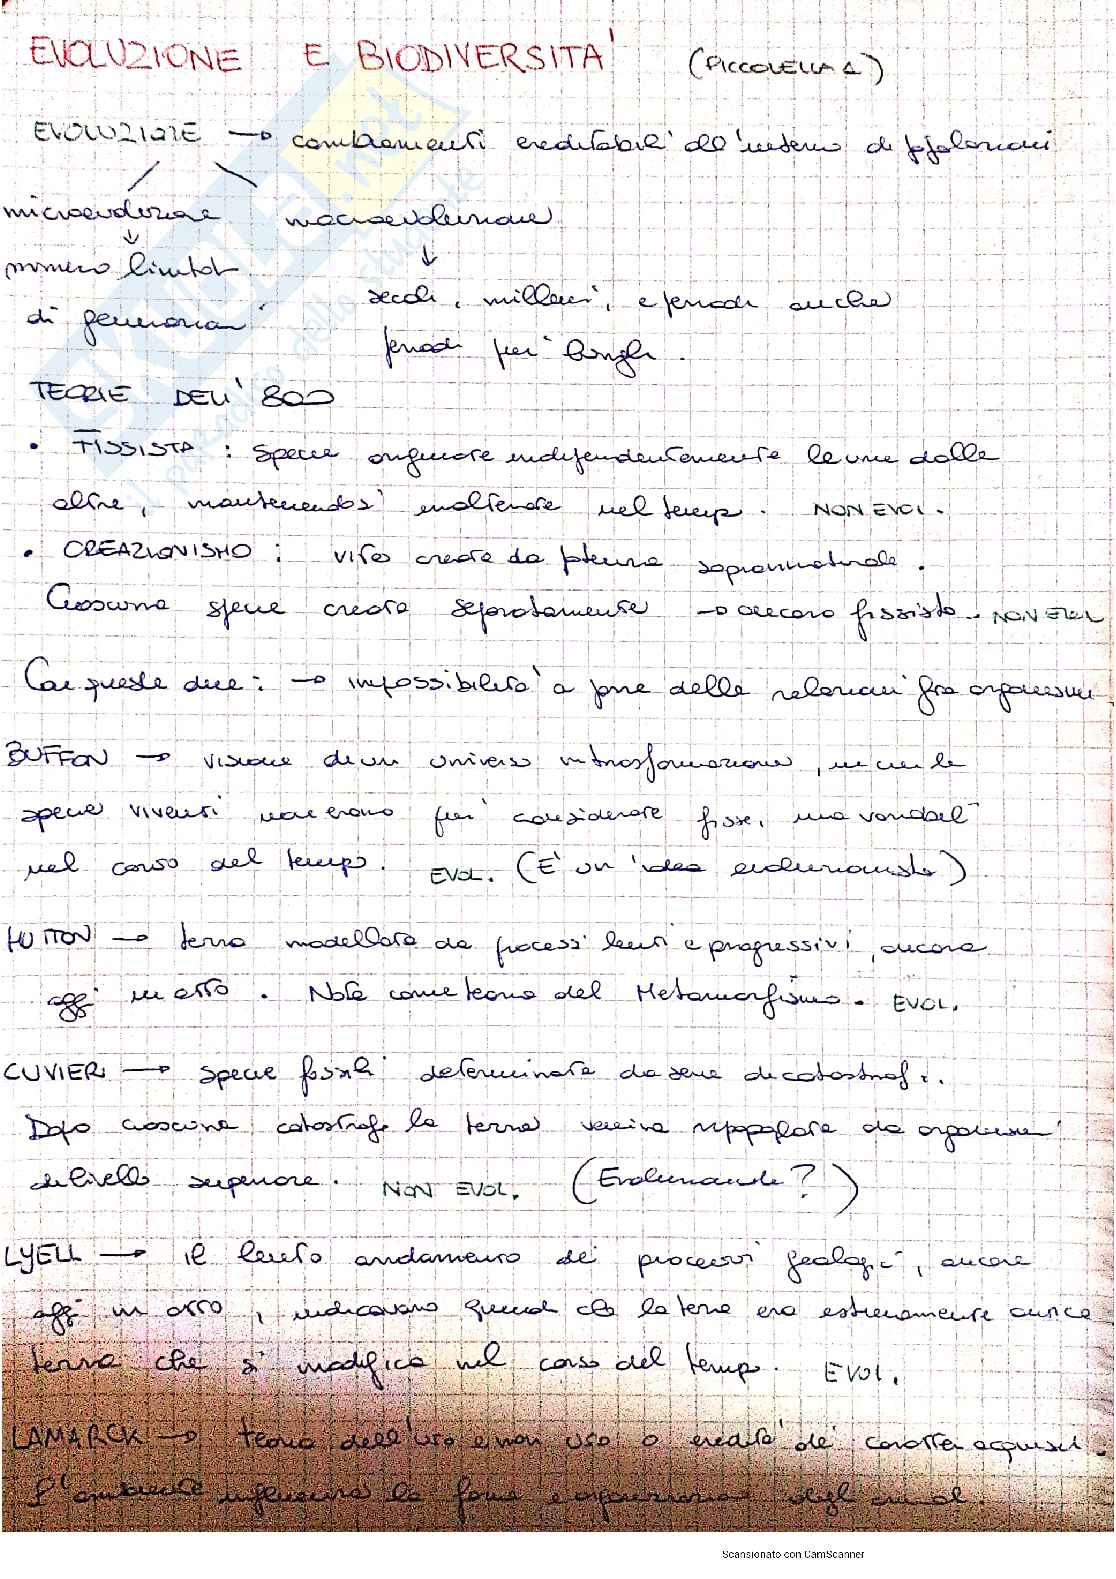 EVOLUZIONE E BIODIVERSITA' (PICCOLELLA 1)
EVOLUZIONE → cambiamenti ereditabili all'interno di popolazioni
microevoluzione macroevoluzione
↓ ↓
numero limitat
di generazioni
secoli, millenni, e periodi anche
periodi più lunghi.
TEORIE DELL'800
• FISSISTA : specie originate indipendentemente le une dalle
altre, mantenendosi inalterate nel tempo. NON EVOL.
• CREAZIONISMO : vita creata da potenza soprannaturale.
Ciascuna specie creata separatamente → ancora fissista. NON EVOL
Con queste due: → impossibilità a porre delle relazioni fra organismi
BUFFON → visione di un universo in trasformazione, in cui le
specie viventi non erano più considerate fisse, ma variabili
nel corso del tempo. EVOL. (E' un'idea evoluzionista)
HUTTON → terra modellata da processi lenti e progressivi, ancora
oggi in atto. Nota come teoria del Metamorfismo. EVOL.
CUVIER → specie fossili determinate da serie di catastrofi.
Dopo ciascuna catastrofe la terra veniva ripopolata da organismi
di livello superiore. NON EVOL. (Evoluzionante?)
LYELL → il lento andamento dei processi geologici, ancora
oggi in atto, indicavano quindi che la terra era estremamente antica
terra che si modifica nel corso del tempo. EVOL.
LAMARCK → teoria dell'uso e non uso o eredità dei caratteri acquisiti.
L'ambiente influenza la forma e organizzazione degli animali.
skuola.net
il paradiso dello studente
Scansionato con CamScanner